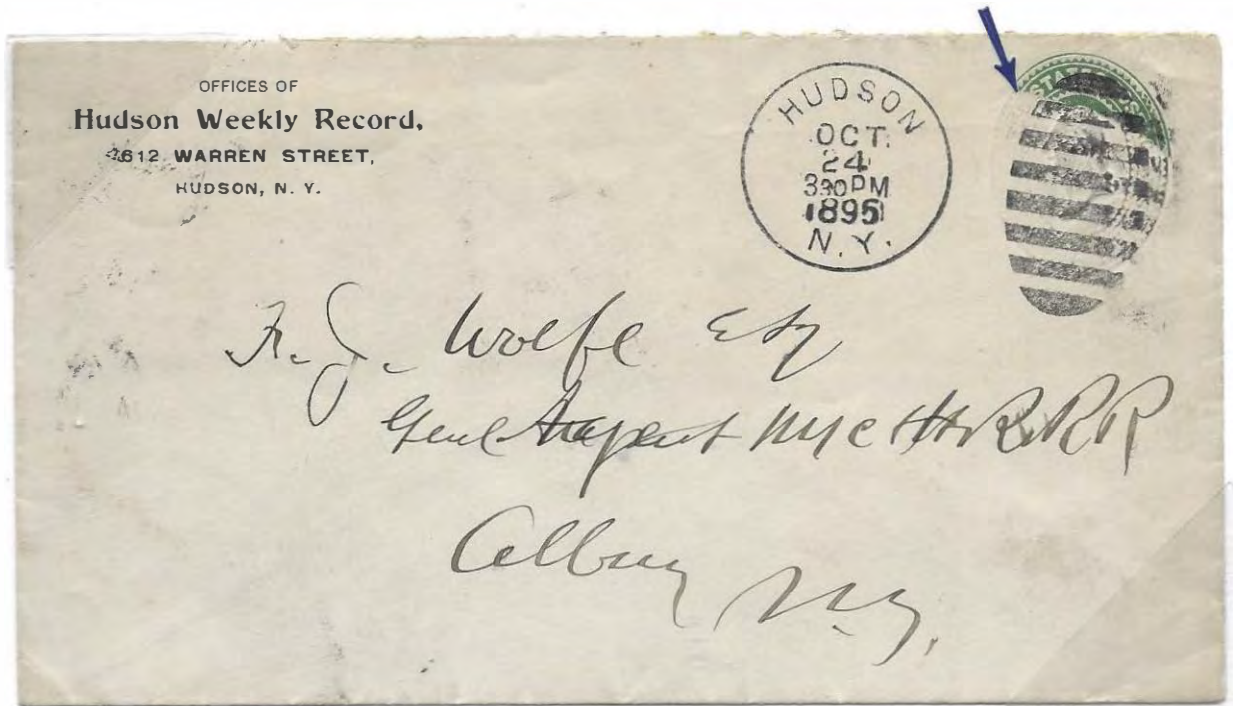 OFFICES OF
Hudson Weekly Record,
612 WARREN STREET,
HUDSON, N. Y.
HUDSON
OCT.
24
330PM
1895
N. Y.
STATES
F. J. Wolfe Esq
Genl Agent NYC HRRR
Albany N.Y.